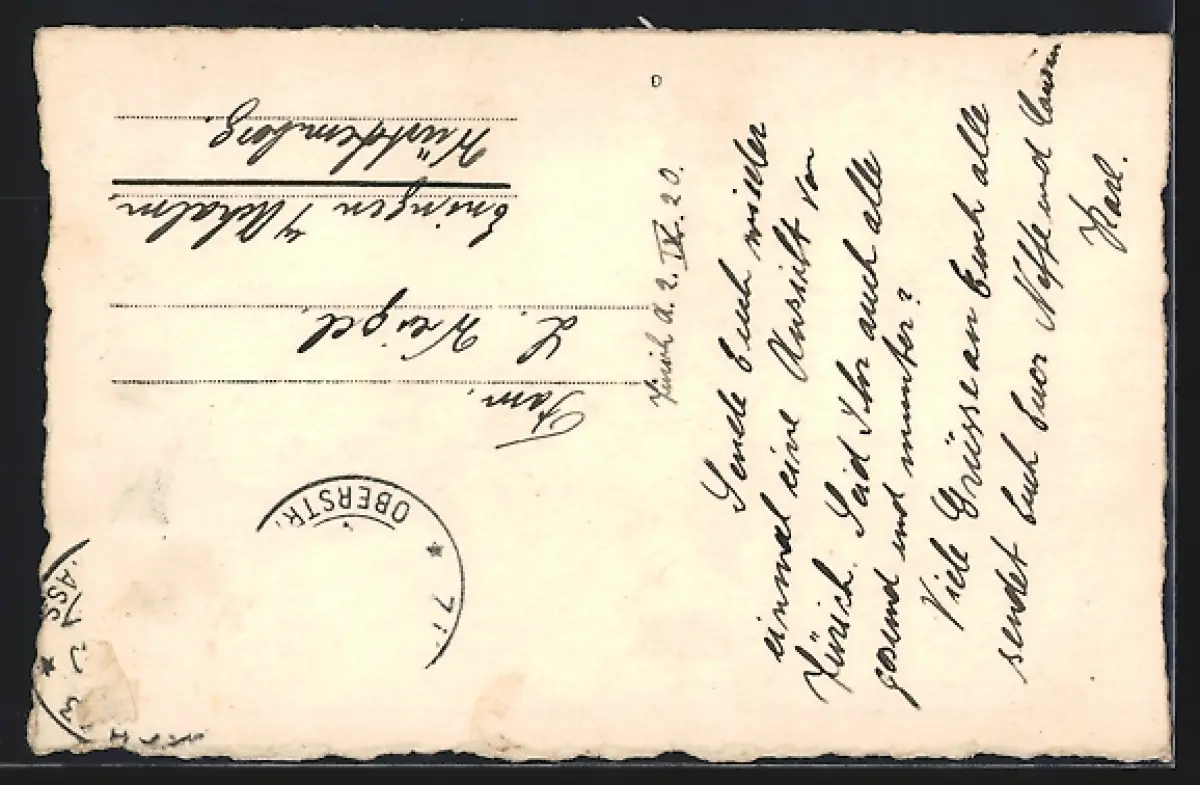 Zürich d. 2. IX. 20.
Sende Euch wieder
einmal eine Ansicht von
Zürich. Seid Ihr auch alle
gesund und munter?
Viele Grüsse an Euch alle
sendet Euch Euer Neffe und Cousin
Karl.
Fam.
L. Weigel.
Eningen u/Achalm
Württemberg.
OBERSTR.